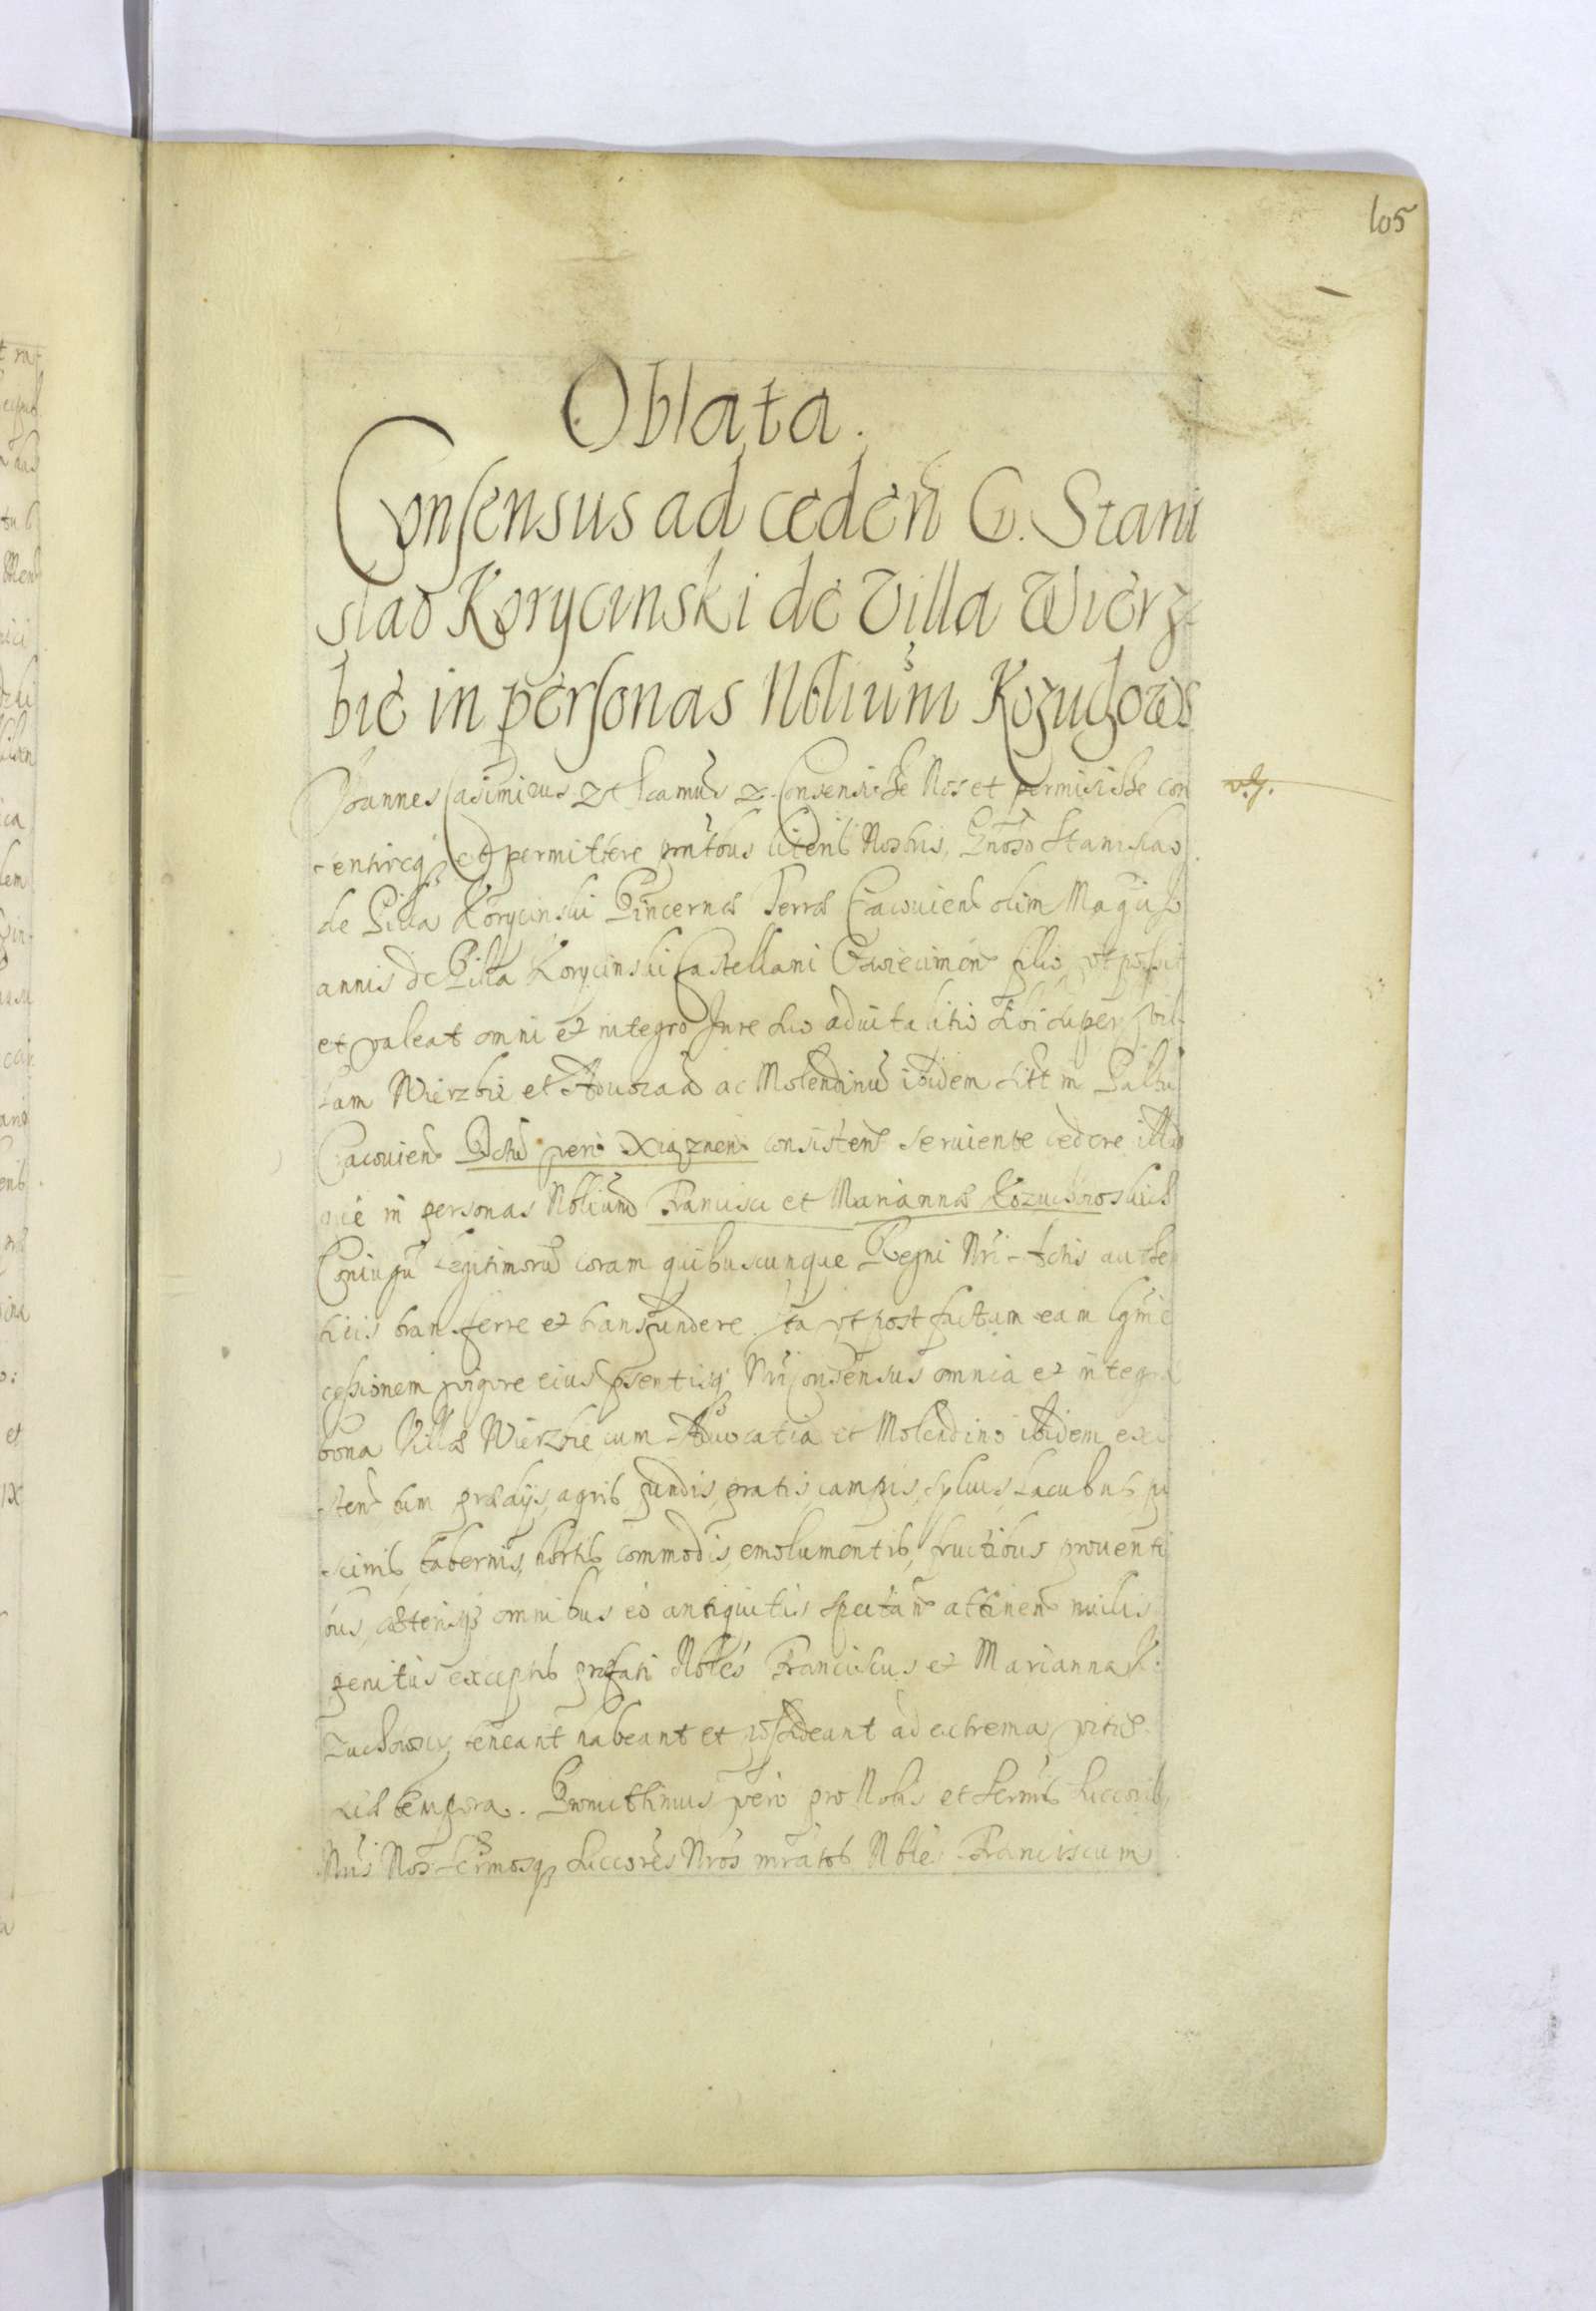 105
Oblata.
Consensus ad ceden G. Stani
slao Korycinski de Villa Wierz=
bie in personas Nblium Kozuchows
Joannes Casimirus Consensisse Nos et permisisse con
sentireqz et permittere pntbus literis Nostris, Gnoso Stanislao
de Pilca Korycinski Pincernæ Terræ Cracouien olim Magci Jo
annis de Pilca Korycinski Castellani Oswiecimen filio, vt possit
et valeat omni et integro Jure suo aduitalitio sibi super vil-
lam Wierzbie et Aduocaa ac Molendinu ibidem sitt in Pallu
Cracouien Dctu vero Xiąznen consisten seruiente cedere illud
que in personas Nblium Francisci et Mariannæ Kozuchowskich
Coniugu Legitimoru coram quibuscunque Regni Nri Actis authe
ticis transferre et transfundere. Ita vt post factam eam lgme
cessionem vigore eius psentisqz Nri Consensus omnia et integra
bona Villæ Wierzbie cum Aduocatia et Molendino ibidem exi
sten tum prædijs, agris, fundis, pratis, campis, syluis, Lacubus, pi
scinis, tabernis, hortis, commodis, emolumentis, fructibus prouenti
bus, cæterisqz omnibus eo antiquitus spectan attinen nullis
penitus exceptis præfati Nbles Franciscus et Marianna Ko
zuchowscy teneant habeant et possideant ad extrema vitæ
suæ tempora. Promittimus vero pro Nobis et Sermis Succorib
Nris Nos Sermosqz Succores Nros mratos Nbles Franciscum